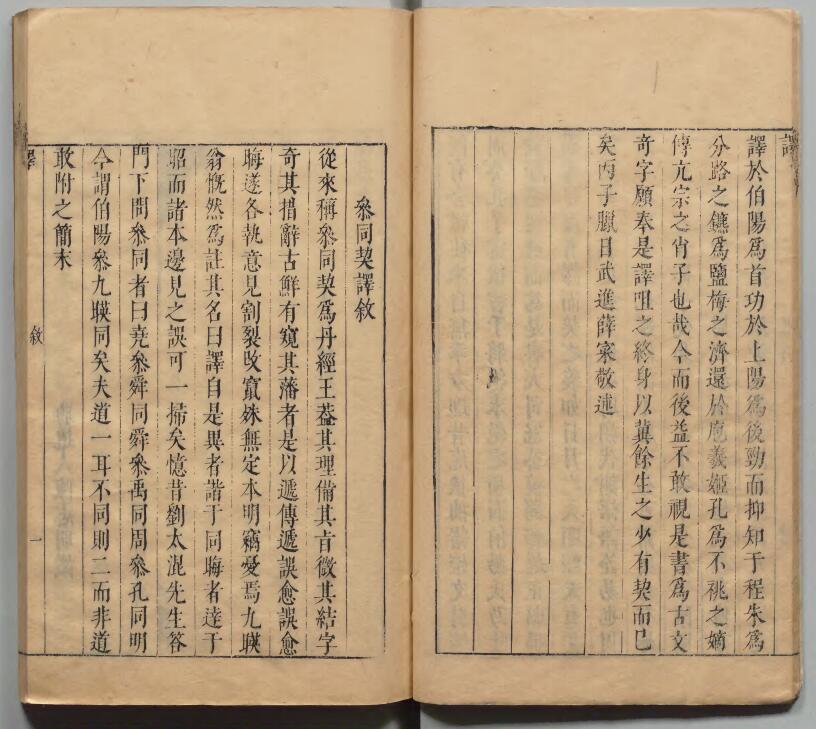 譯
譯於伯陽為首功於上陽為後勁而抑知于程朱為
分路之鑣為鹽梅之濟還於庖羲姬孔為不祧之嫡
傳亢宗之肖子也哉今而後益不敢視是書為古文
奇字願奉是譯咀之終身以冀餘生之少有契而已
矣丙子臘日武進薛寀敬述
參同契譯敘
從來稱參同契為丹經王蓋其理備其旨微其結字
奇其措辭古鮮有窺其藩者是以遞傳遞誤愈誤愈
晦遂各執意見割裂改竄殊無定本明竊憂焉九暎
翁慨然為註其名曰譯自是異者諧于同晦者達于
昭而諸本邊見之誤可一掃矣憶昔劉太混先生答
門下問參同者曰堯參舜同舜參禹同周參孔同明
今謂伯陽參九暎同矣夫道一耳不同則二而非道
敢附之簡末
譯
敘
一